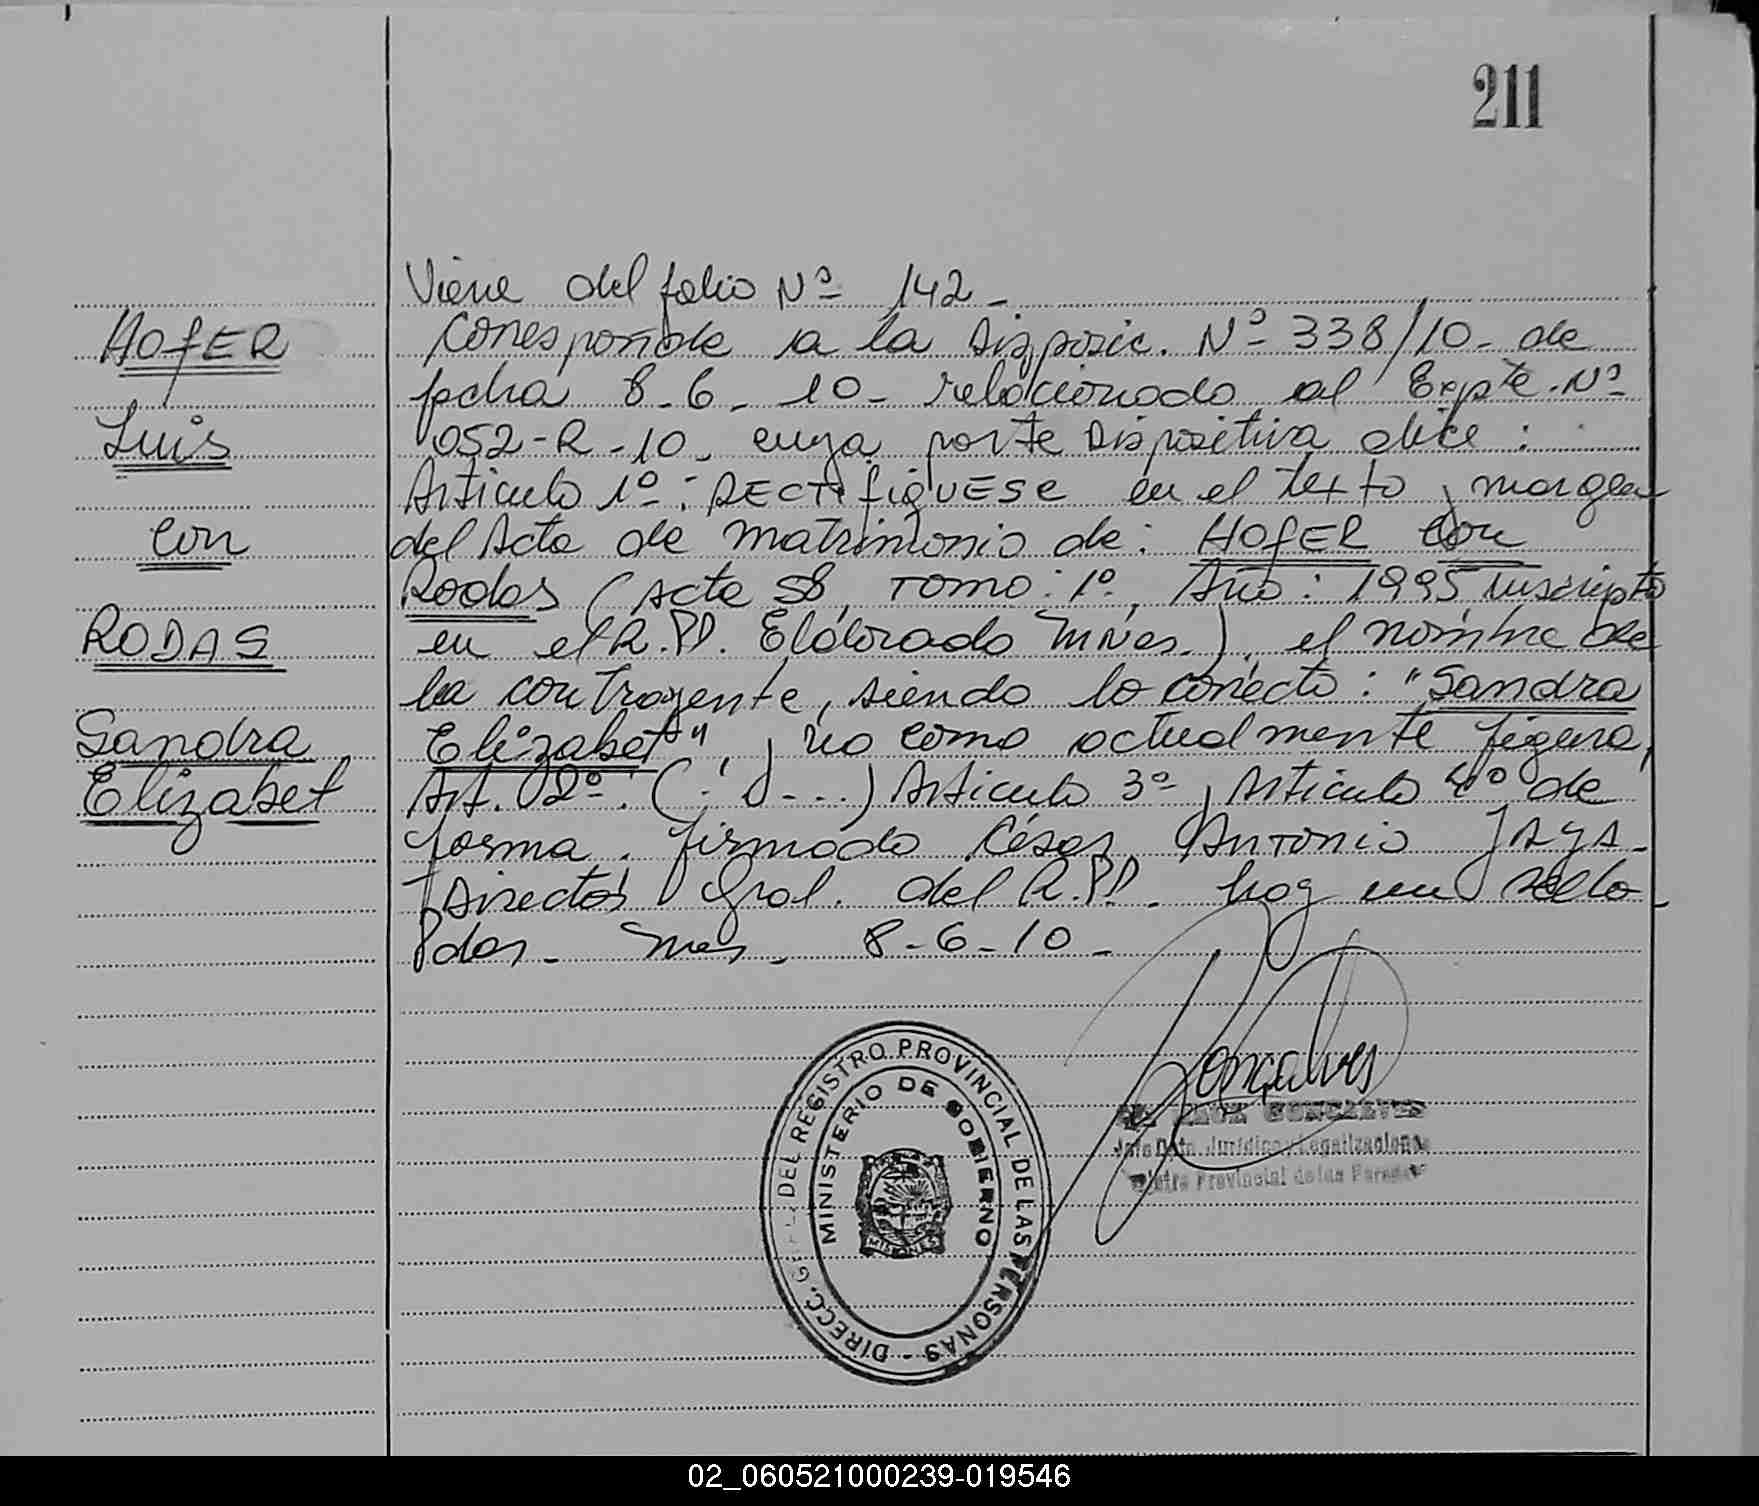 211
Viene del folio Nº 142 -
HOfER
Corresponde a la Disposic. Nº 338/10 - de
fecha 8-6-10 - relacionado al Expte. Nº
Luis
052-R-10, cuya parte Dispositiva dice :
Artículo 1º : RECTIfiQUESE en el texto y margen
con
del Acta de matrimonio de: HOfER con
Rodas (Acta 58, Tomo: 1º, Año: 1995, Inscripto
RODAS
en el R.PP. Eldorado Mnes.), el nombre de
la contrayente, siendo lo correcto : "Sandra
Sandra
Elizabet", y no como actualmente figura,
Elizabet
Art. 2º : ( . . . ) Artículo 3º y Artículo 4º de
forma. firmado César Antonio JAYA -
Director Gral. del R.PP. hay un sello -
Pdas - Mnes - 8-6-10 -
DIRECC. GRAL. DEL REGISTRO PROVINCIAL DE LAS PERSONAS -
MINISTERIO DE GOBIERNO
MISIONES
Gonçalves
GONCALVES
Jefe Dpto. Jurídico y Legalizaciones
Registro Provincial de las Personas
02_060521000239-019546